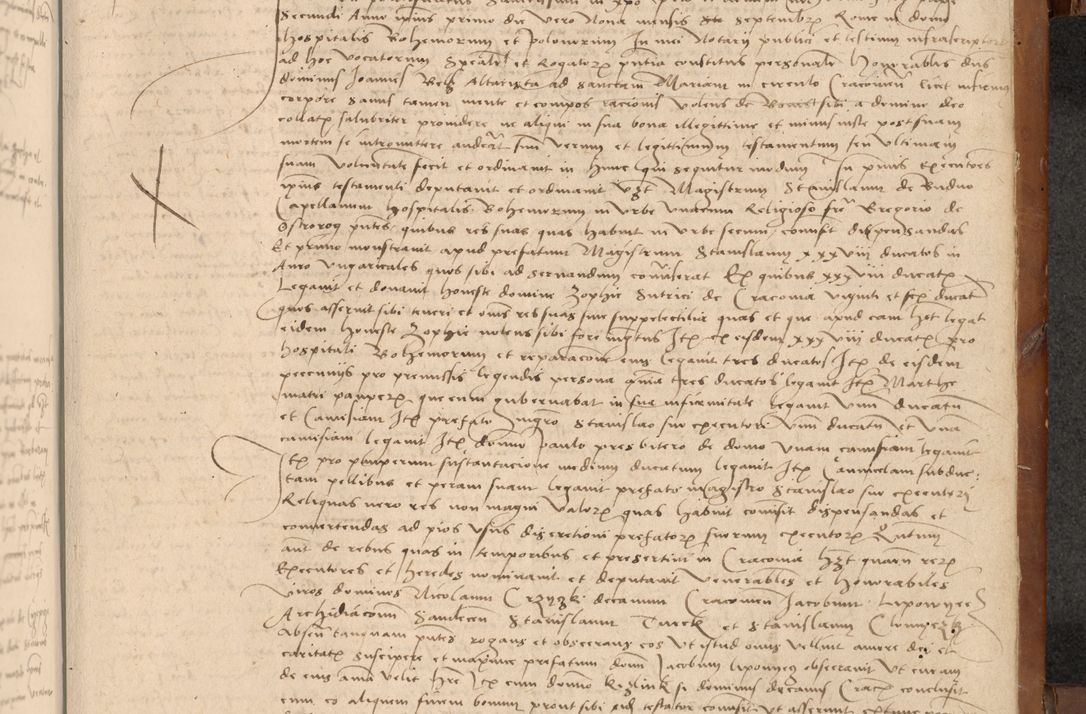 Secundi Anno ipius primo die vero Nona mensis Septembrx Rome in domo
Hospitalis Bohemorum et polonorum In mei Notarij publici et testium infrascriptorx
ad hoc vocatorum Spealr et Rogatorx pntia constitus personalr Honorablis dns
dominus Joannes Belz Altarista ad sanctam Mariam in circulo Cracovien licet infirmus
corpore sanus tamen mente et compos racionis volens de sibi a domino deo
collatx salubriter providere ne aliqui in sua bona illegittime et minus iuste post suam
mortem se intromittere andeat suu verum et legittimum testamentum seu ultimam
suam voluntate fecit et ordinavit in hunc qui sequitur modum In primis Executores
ipius testamenti deputavit et ordinavit vzt Magistrum Stanislaum de Budno
Capellanum Hospitalis Bohemorum in Urbe unacum Religioso fre Gregorio de
Ostrorog pntes quibus res suas quas habuit in urbe secum comisit dispensandas
Et primo monstravit apud prefatum Magistrum Stanislaum xxxviii ducatos in
Auro ungaricales quos sibi ad servandum comiserat Ex quibus xxxviii ducatx
Legavit et donavit honeste domine Zophie Sutrici de Cracovia viginti et sex ducat
quos asseruit sibi teneri et omes res suas sive suppelectilia quas et que apud eam hzt legat
eidem Honeste Zophie nolens sibi fore ingratus Itx ex eisdem xxxviii ducatx pro
Hospitali Bohemorum et reparacone eius legavit tres ducatos Itx de eisdem
peccunijs pro premissis legendis persona tres ducatos legavit Itx Marthe
matri pauperx que eum gubernabat in sua infirmitate legavit unu ducatu
et Camisiam Itx prefato mgro Stanislao suo executori unu ducatu et una
camisiam legavit Itx domio Paulo presbitero de domo unam camisiam legavit
Itx pro pauperum sustentacione medium ducatum legavit Itx subduc:
tam pellibus et peram suam legavit prefato magistro Stanislao suo executori
Reliquas vero res non magni valorx quas habuit comisit dispensandas et
convertendas ad pios usus discretioni prefatorx suorum executorx
aut de rebus quas in temporibus et presertim in Cracovia hzt quaru rerx
Executores et heredes nominavit et deputavit venerabiles et honorabiles
viros dominos Nicolaum Crzyzki decanum Cracovien Jacobum Lipowyecz
Archidiaconu Sandecen Stanislaum Turek et Stanislaum
Absen tanquam pntes rogans et obsecrans eos ut istud onus vellint amore dei et
caritatx suscipere et maxime prefatum dom Jacobum Lipowyecz obsecravit ut curam
de eius velit hre Itx cum domio si dominus decanus Cracox conclusit
cum eo aliquem finem bonum prout sibi testator comisit ut asserunt